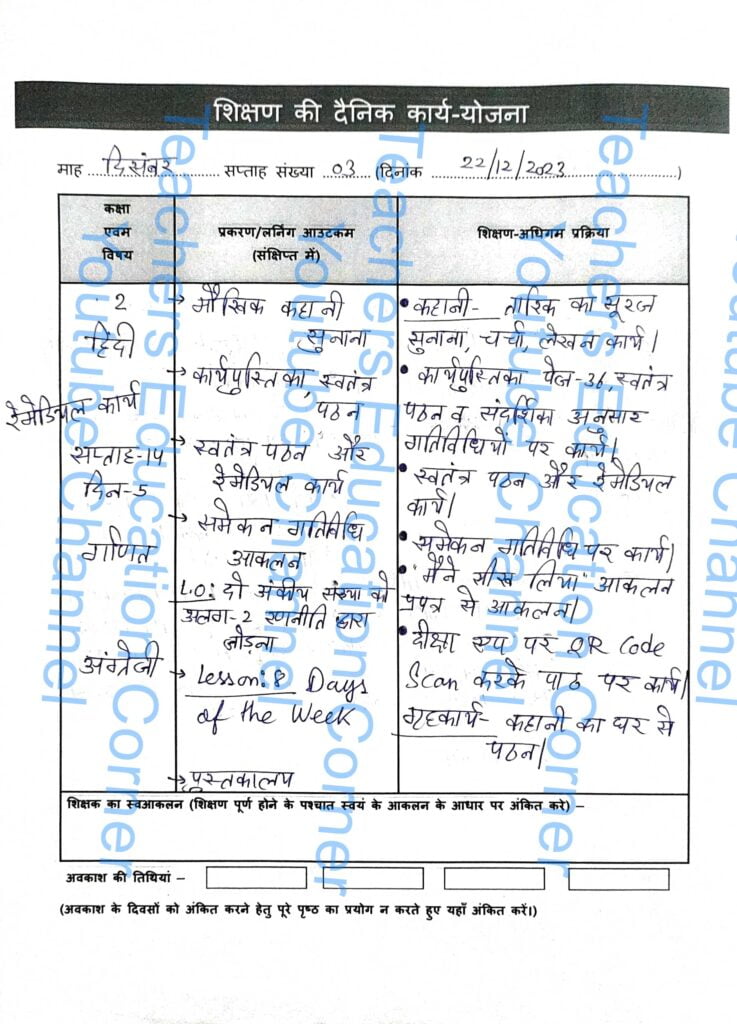 शिक्षण की दैनिक कार्य-योजना
माह दिसंबर सप्ताह संख्या 03 (दिनांक 22/12/2023)
कक्षा
एवम
विषय
प्रकरण/लर्निंग आउटकम
(संक्षिप्त में)
शिक्षण-अधिगम प्रक्रिया
2
हिंदी
रेमेडियल कार्य
सप्ताह-14
दिन-5
गणित
अंग्रेजी
→ मौखिक कहानी
सुनाना
→ कार्यपुस्तिका, स्वतंत्र
पठन
→ स्वतंत्र पठन और
रेमेडियल कार्य
→ समेकन गतिविधि
आकलन
L.O: दो अंकीय संख्या को
अलग-2 रणनीति द्वारा
जोड़ना
→ Lesson:8 Days
of the Week
→ पुस्तकालय
• कहानी- तारिक का सूरज
सुनाना, चर्चा, लेखन कार्य।
• कार्यपुस्तिका पेज-36, स्वतंत्र
पठन व संदर्शिका अनुसार
गतिविधियों पर कार्य।
• स्वतंत्र पठन और रेमेडियल
कार्य।
• समेकन गतिविधि पर कार्य।
• "मैंने सीख लिया" आकलन
प्रपत्र से आकलन।
• दीक्षा एप पर QR Code
Scan करके पाठ पर कार्य।
गृहकार्य- कहानी का घर से
पठन।
शिक्षक का स्वआकलन (शिक्षण पूर्ण होने के पश्चात स्वयं के आकलन के आधार पर अंकित करे) –
अवकाश की तिथियां –
(अवकाश के दिवसों को अंकित करने हेतु पूरे पृष्ठ का प्रयोग न करते हुए यहाँ अंकित करें।)
Teachers Education Corner
Youtube Channel
Teachers Education Corner
Youtube Channel
Teachers Education Corner
Youtube Channel
Youtube Channel